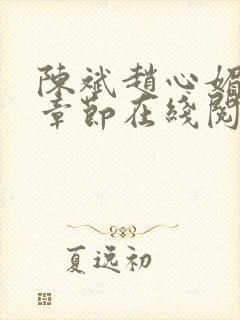 陳斌趙心媚
章節在綫閱
夏逸初